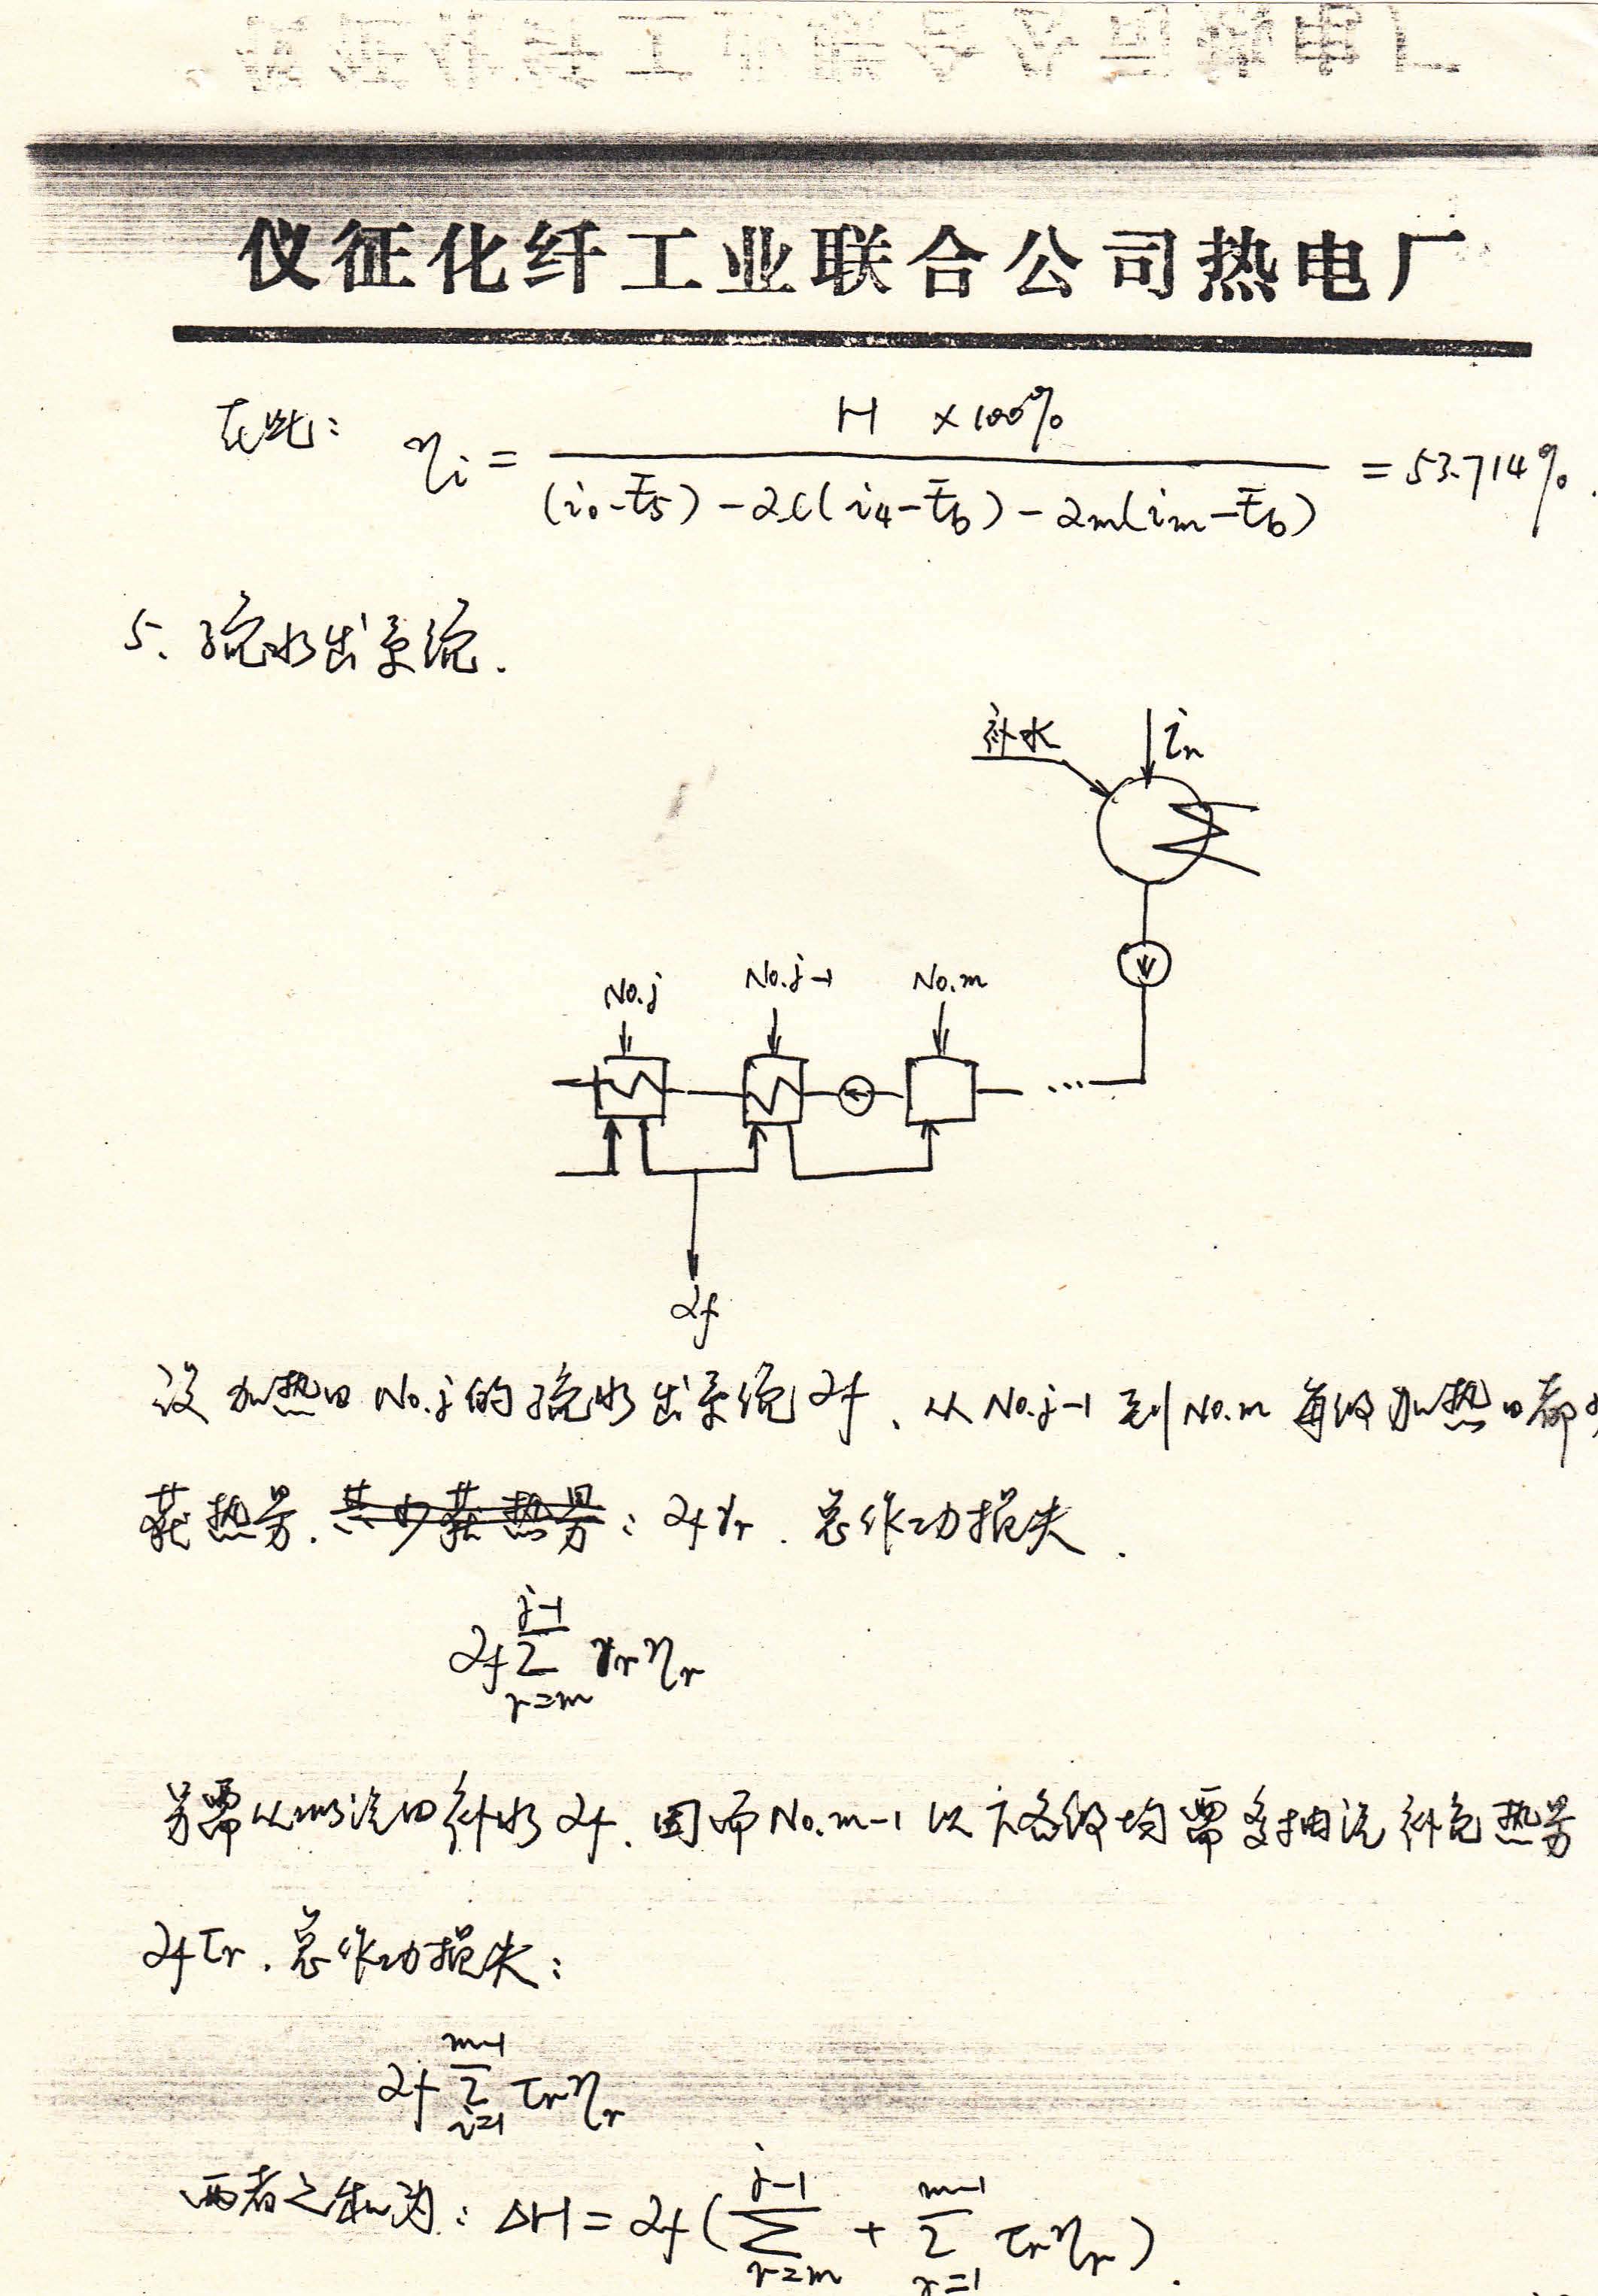 仪征化纤工业联合公司热电厂
在此: ηi = H ×100% / ((i₀-t̄5) - αc(i4-t̄b) - αm(im-t̄b)) = 53.714%.
5、疏水出系统.
补水 in
No.j No.j-1 No.m
...
αf
设加热口No.j的疏水出系统αf、从No.j-1到No.m每级加热口都少
获热量.共少获热量: αfγr. 总作功损失.
αf Σ_{r=m}^{j-1} γrηr
另需从 汽口补水αf. 因而No.m-1以下各级均需多抽汽补充热量
αfτr. 总作功损失:
αf Σ_{i=1}^{m-1} τrηr
两者之和为: ΔH = αf(Σ_{r=m}^{j-1} + Σ_{r=1}^{m-1} τrηr).